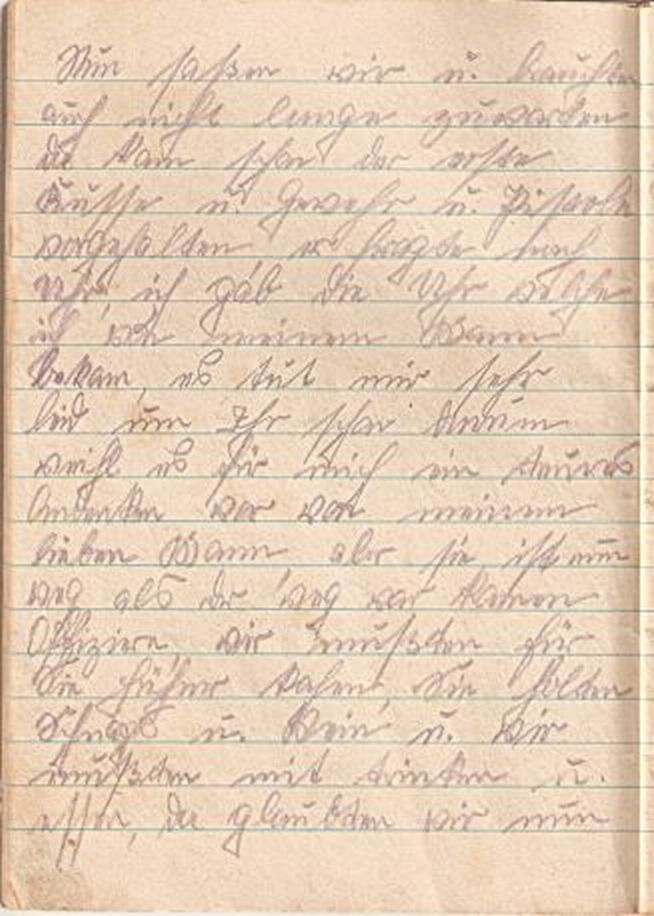 Nun saßen wir u. brauchten
auch nicht lange zuwarten
da kam schon der erste
Russe u. Gewehr u. Pistole
vorgehalten, er fragte nach
Uhr, ich gab die Uhr welche
ich von meinem Mann
bekam, es tut mir sehr
leid um Ihr schon darum
weihl es für mich ein teures
Andenken war von meinem
lieben Mann, aber sie ist nun
weg als der weg war kamen
Offiziere, wir mußten für
Sie Hühner kochen, Sie holten
Schnaps u. Wein u. wir
mußten mit trinken u.
essen, da glaubten wir nun